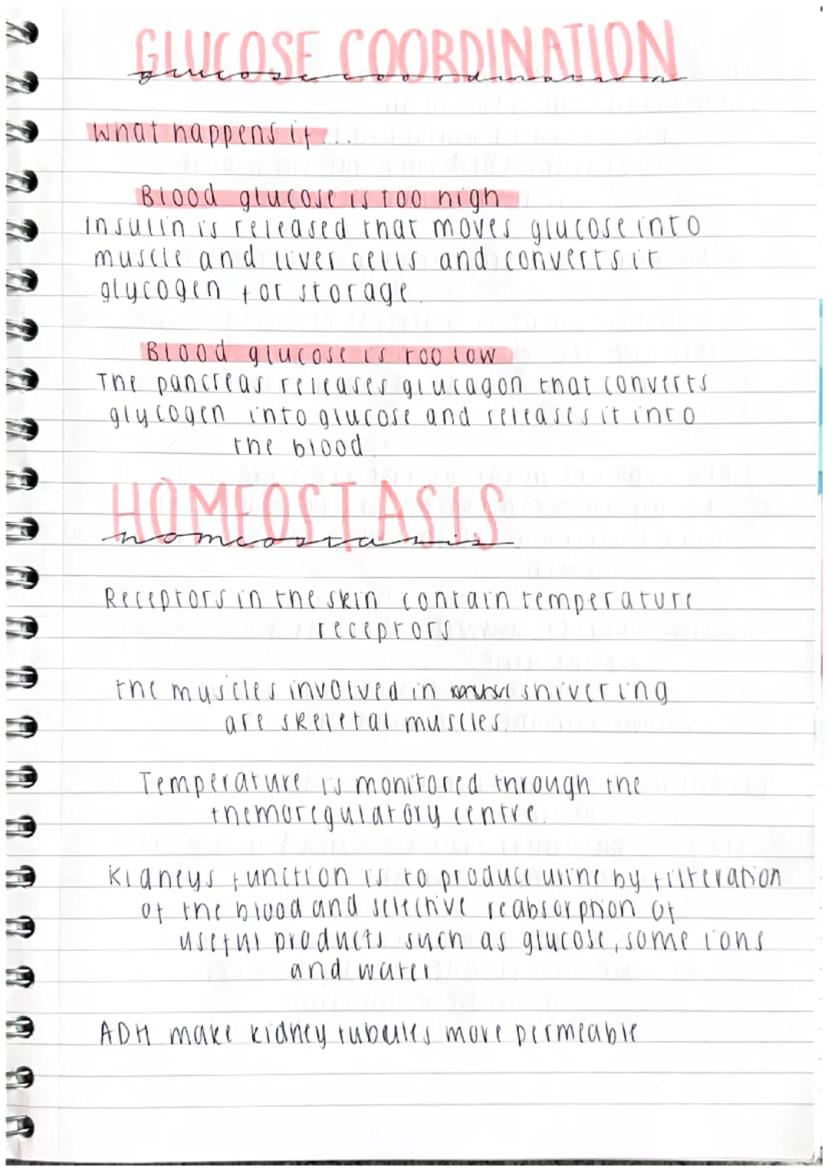 GLUCOSE COORDINATION
glucose coordination
What happens if...
Blood glucose is too high
Insulin is released that moves glucose into
muscle and liver cells and converts it
glycogen for storage.
Blood glucose is too low
The pancreas releases glucagon that converts
glycogen into glucose and releases it into
the blood.
HOMEOSTASIS
homeostasis
Receptors in the skin contain temperature
receptors
The muscles involved in shivering
are skeletal muscles.
Temperature is monitored through the
themoregulatory centre
Kidneys function is to produce urine by filteration
of the blood and selective reabsorption of
useful products such as glucose, some ions
and water
ADH make kidney tubules more permeable